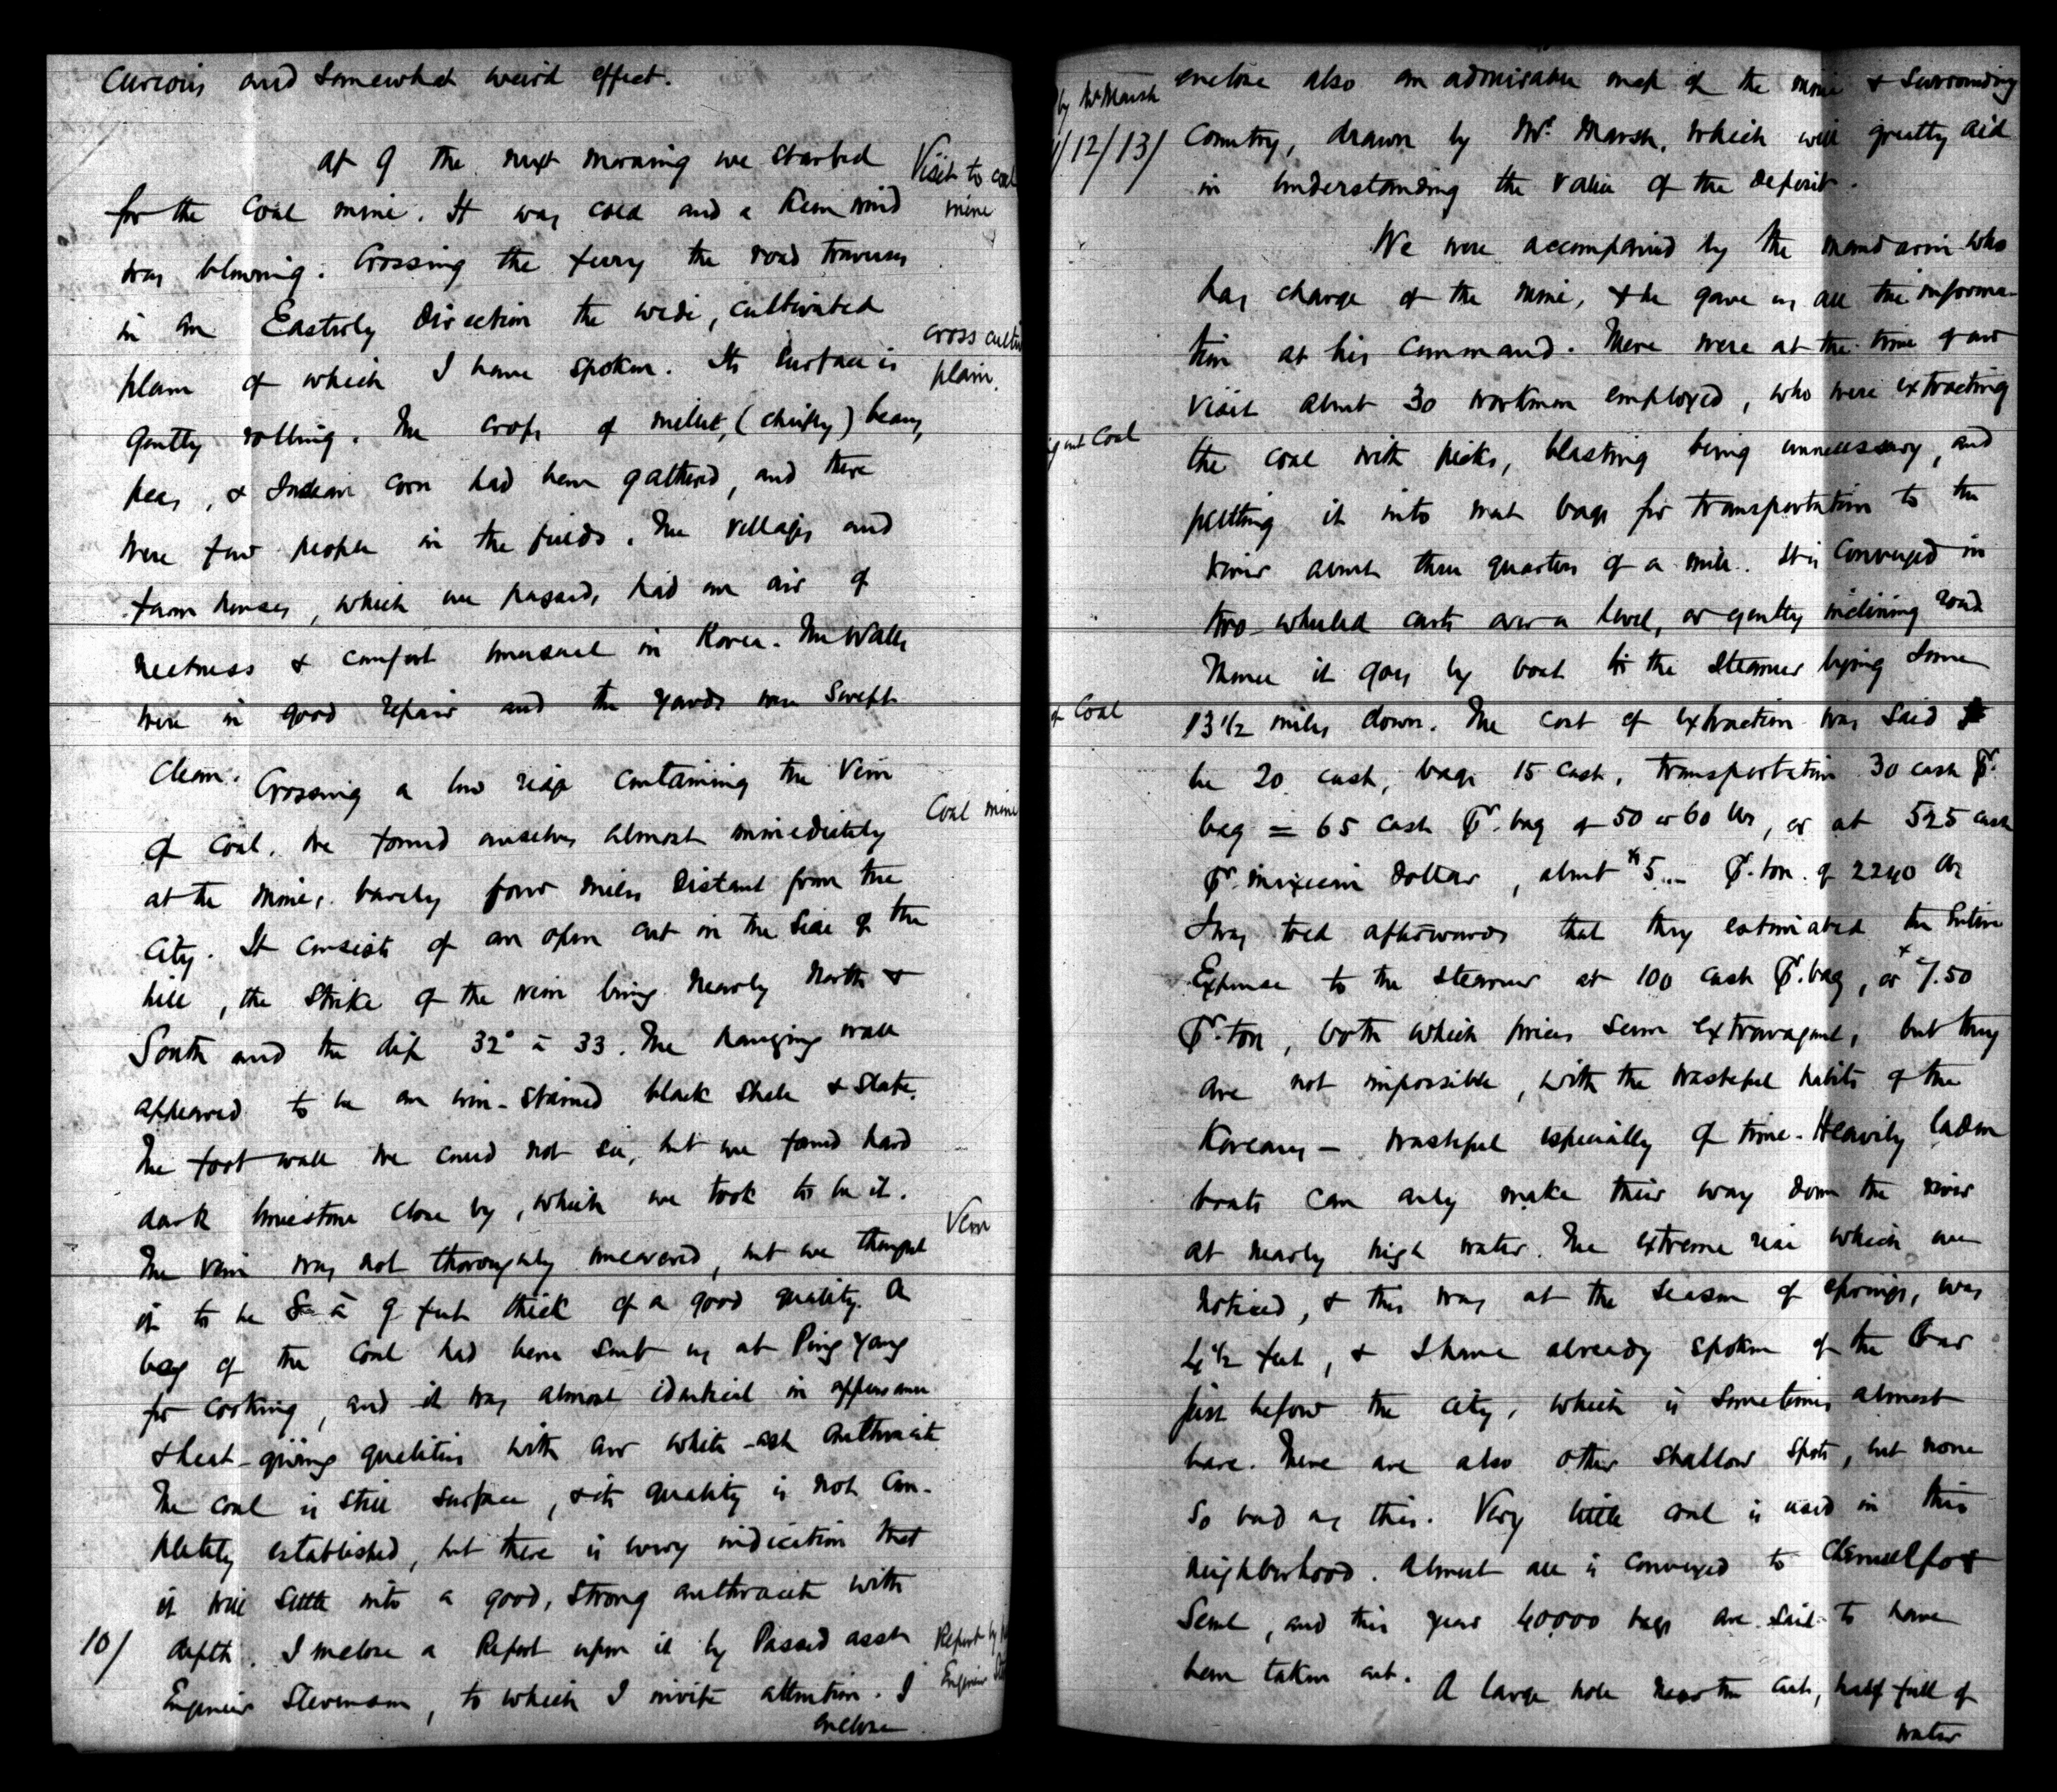 curious and somewhat weird effect.
At 9 the next morning we started
Visit to coal
mine
for the coal mine. It was cold and a keen wind
was blowing. Crossing the ferry the road traverses
in an Easterly direction the wide, cultivated
cross culti
plain.
plain of which I have spoken. Its surface is
gently rolling. The crops of millet, (chiefly) beans,
peas, & Indian corn had been gathered, and there
were few people in the fields. The villages and
farm houses, which we passed, had an air of
neatness & comfort unusual in Korea. The walls
were in good repair and the yards were swept
clean. Crossing a low ridge containing the vein
Coal mine
of coal, we found ourselves almost immediately
at the mine, barely four miles distant from the
city. It consists of an open cut in the side of the
hill, the strike of the vein being nearly North &
South and the dip 32° à 33. The hanging wall
appeared to be an iron-stained black shale & slate.
The foot wall we could not see, but we found hard
dark limestone close by, which we took to be it.
Vein
The vein was not thoroughly uncovered, but we thought
it to be 8 à 9 feet thick of a good quality. A
bag of the coal had been sent us at Ping Yang
for cooking, and it was almost identical in appearance
& heat-giving qualities with our white-ash anthracite.
The coal is still surface, & its quality is not com-
pletely established, but there is every indication that
it will settle into a good, strong anthracite with
10/
depth. I enclose a Report upon it by Passed Asst
Report by
Engineer
Engineer Stevenson, to which I invite attention. I
enclose
by Mr Marsh
/12/13/
enclose also an admirable map of the mine & surrounding
country, drawn by Mr. Marsh, which will greatly aid
in understanding the value of the deposit.
We were accompanied by the mandarin who
has charge of the mine, & he gave us all the informa-
tion at his command. There were at the time of our
visit about 30 workmen employed, who were extracting
out Coal
the coal with picks, blasting being unnecessary, and
putting it into mat bags for transportation to the
river about three quarters of a mile. It is conveyed in
two-wheeled carts over a level, or gently inclining road
Thence it goes by boat to the steamer lying some
of Coal
13 1/2 miles down. The cost of extraction was said to
be 20 cash, bags 15 cash, transportation 30 cash ⅌.
bag = 65 cash ⅌. bag of 50 or 60 lbs, or at 525 cash
⅌. Mexican dollar, about $5.– ⅌. ton of 2240 lbs
I was told afterwards that they estimated the entire
Expense to the steamer at 100 cash ⅌. bag, or $7.50
⅌. ton, both which prices seem extravagant, but they
are not impossible, with the wasteful habits of the
Koreans – wasteful especially of time. Heavily laden
boats can only make their way down the river
at nearly high water. The extreme rise which we
noticed, & this was at the season of springs, was
4 1/2 feet, & I have already spoken of the bar
just before the city, which is sometimes almost
bare. There are also other shallow spots, but none
so bad as this. Very little coal is used in this
neighborhood. Almost all is conveyed to Chemulpo &
Seoul, and this year 40000 bags are said to have
been taken out. A large hole near the cut, half full of
water